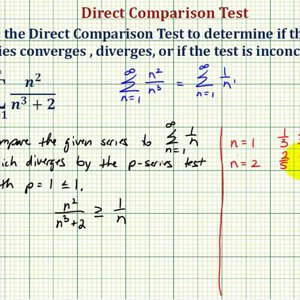 Direct Comparison Test
the Direct Comparison Test to determine if th
ies converges , diverges, or if the test is inconc
∞ n² / n³ + 2
∞ Σ n=1 n²/n³ = ∞ Σ n=1 1/n
mpare the given series to ∞ Σ n=1 1/n
hich diverges by the p-series test
th p = 1 ≤ 1.
n²/n³+2 ≥ 1/n
n = 1 1/3
n = 2 2/5